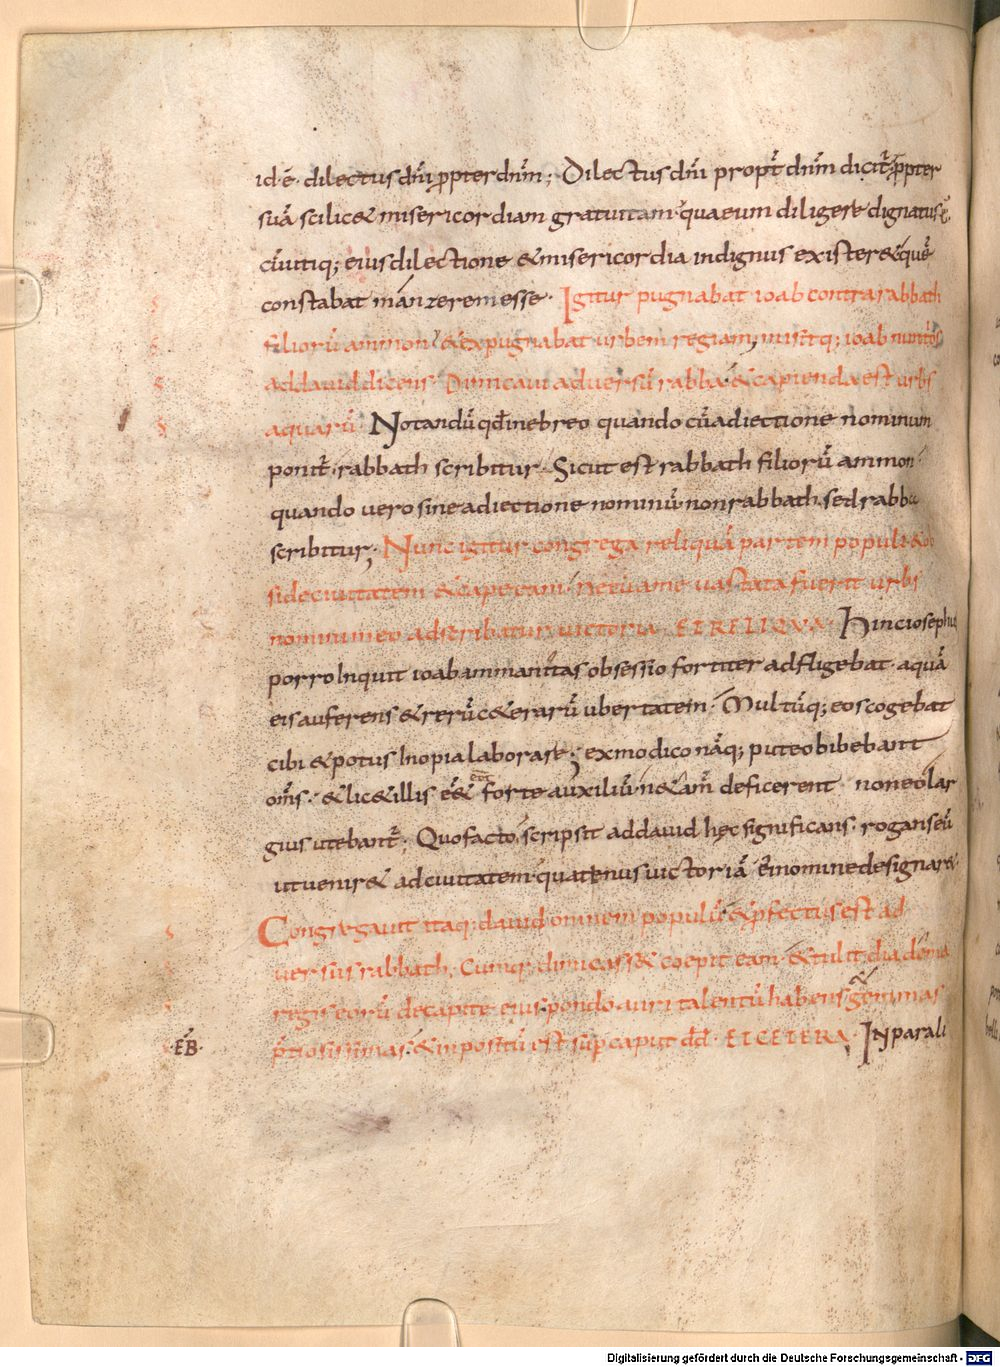 id· ē· dilectus dn̄i ꝓpter dn̄m; Dilectus dn̄i propt̄ dn̄m dicit̄ ꝓpter
suā scilic& misericordiam gratuitam· qua eum diligere dignatus ē·
cūutiq; eius dilectione & misericordia indignus exister& quē
constabat manzerem esse· Igitur pugnabat ioab contra rabbath
filiorū ammon· & expugnabat urbem regiam; misitq; ioab nuntios
ad dauid dicens· Dimicaui aduersū rabba & capienda est urbs
aquarū· Notandū qđ in ebreo quando cū adiectione nominum
ponit̄· rabbath scribitur· Sicut est rabbath filiorū ammon·
quando uero sine adiectione nominū non rabbath sed rabba
scribitur; Nunc igitur congrega reliquā partem populi & ob
side ciuitatem & cape eam· ne cū a me uastata fuerit urbs
nomini meo adscribatur uictoria· ET RELIQUA· Hinc iosephus
porro inquit ioab ammanitas obsessio fortiter adfligebat· aquā
eis auferens & rerū c&erarū ubertatem· Multūq; eos cogebat
cibi & potus inopia laborare; ex modico nāq; puteo bibebant
om̄s· & lic& illis ēē& forte auxiliū n& ām̄ deficerent non eo lar
gius utebant̄· Quo facto scripsit ad dauid hęc significans· rogans eū
ut uenir& ad ciuitatem· quatenus uictoriā ei nomine designar&·
Congregauit itaq; dauid omnem populū & ꝓfectus est ad
uersus rabbath· Cumq; dimicass& coepit eam· & tulit diadema
regis eorū de capite eius· pondo auri talentū habens gemmas
p̄tiosissimas· & impositū est sup̄ caput dd̄· ET CETERA· In parali
·EB̄·
Digitalisierung gefördert durch die Deutsche Forschungsgemeinschaft - DFG